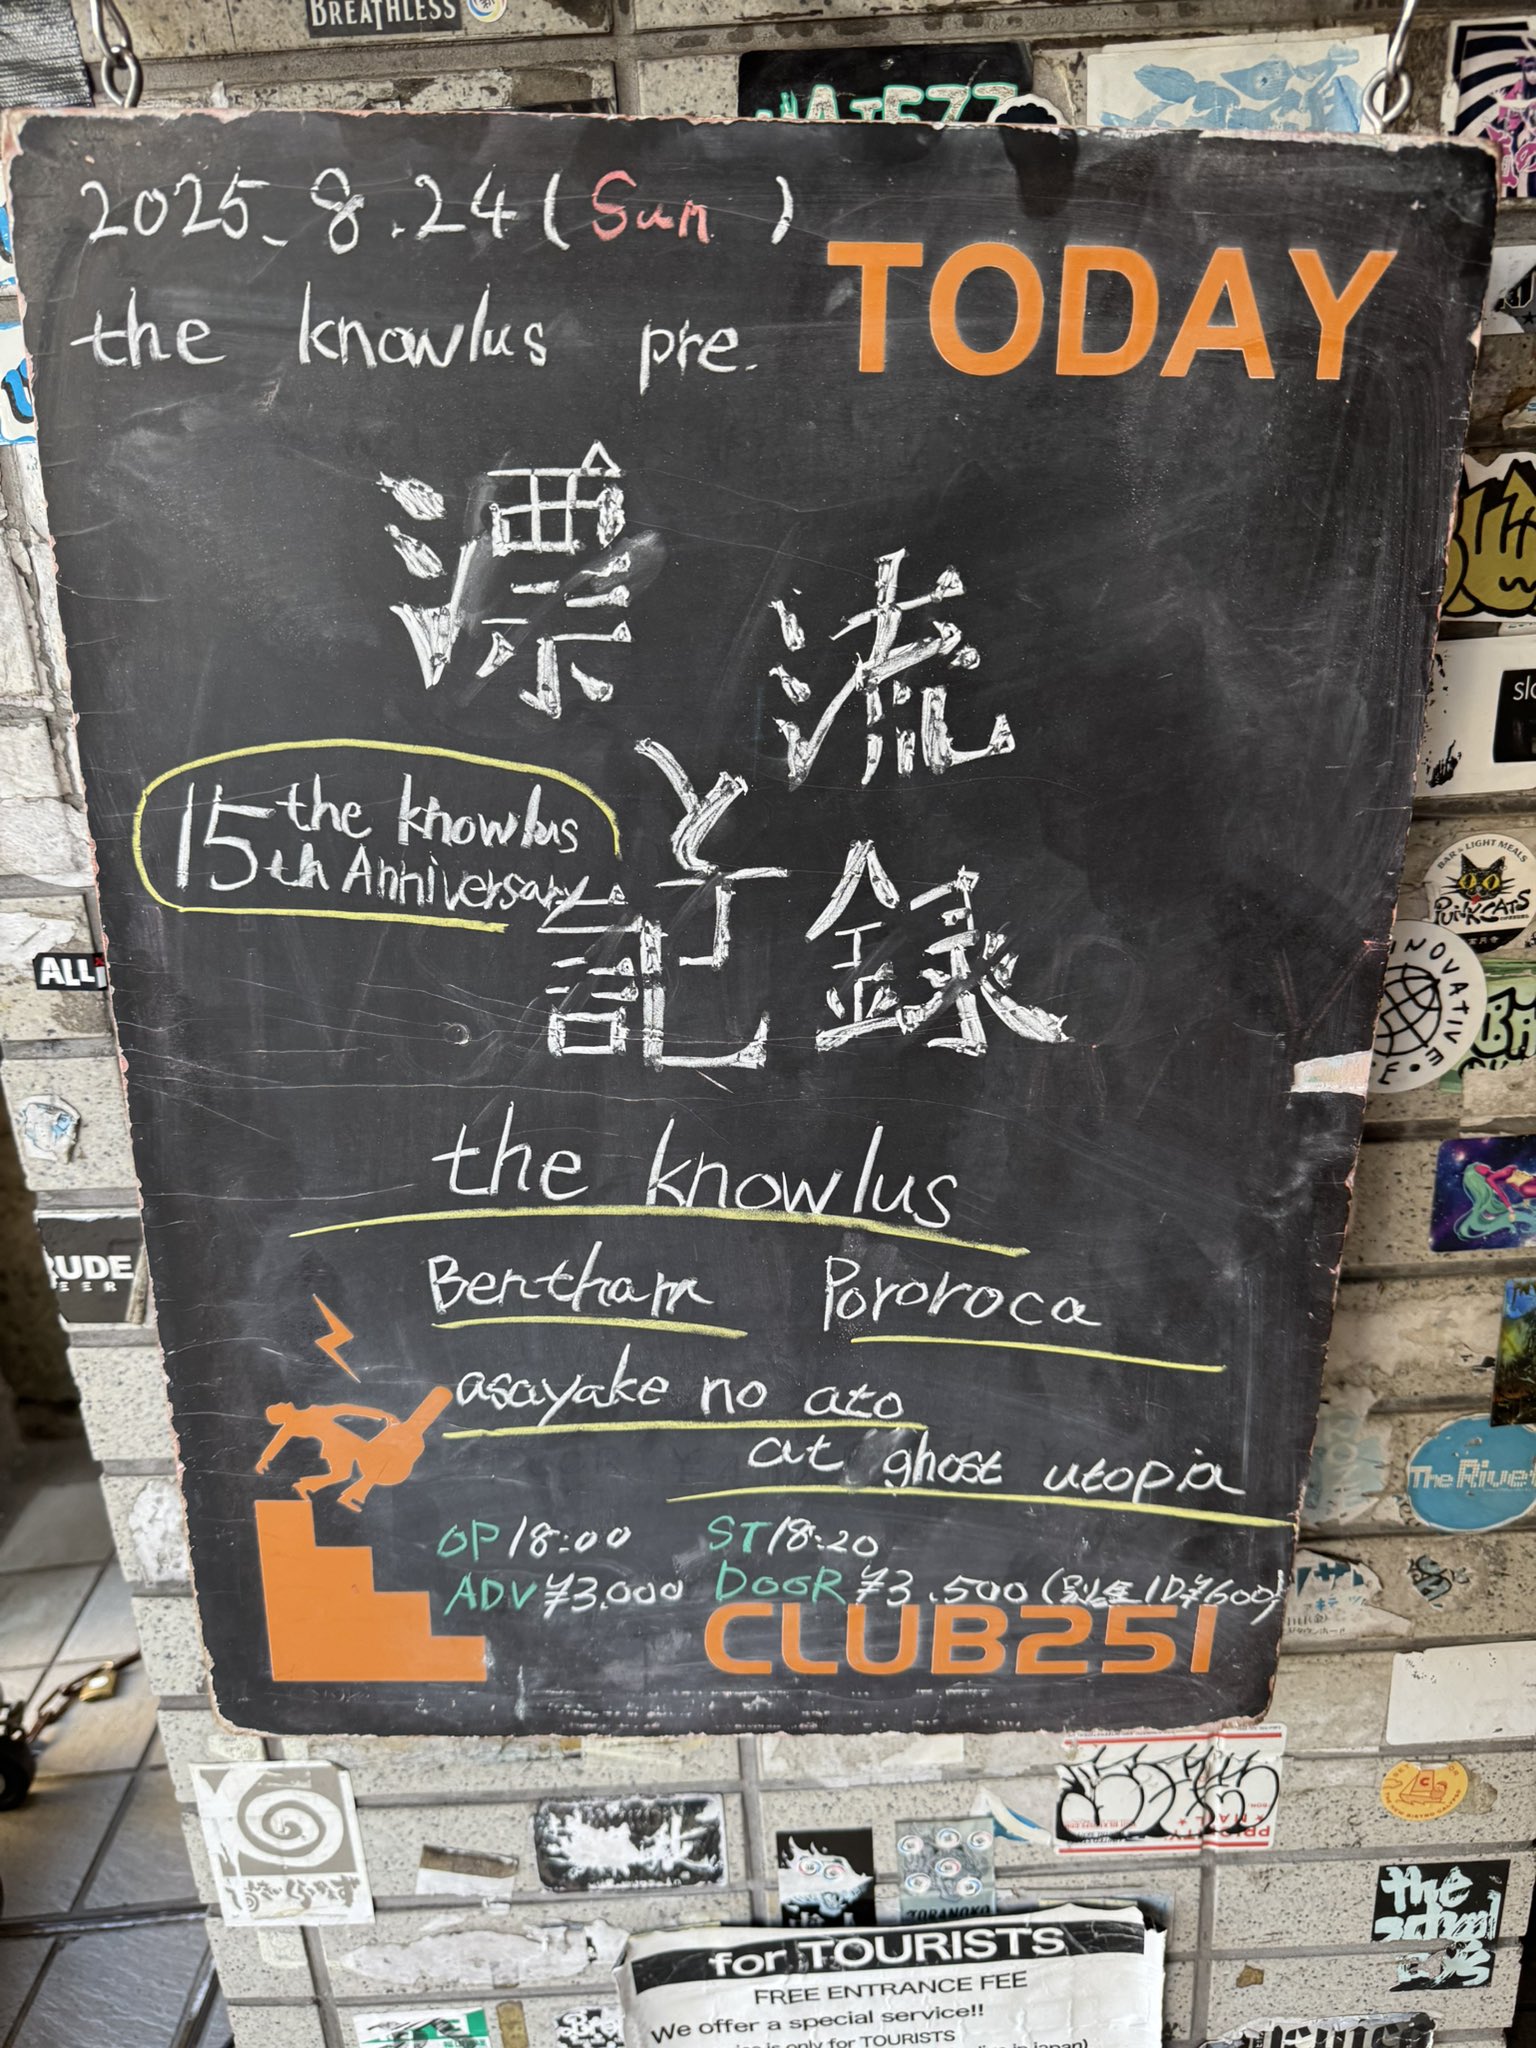 BREATHLESS
2025.8.24(Sun)
TODAY
the knowlus pre.
漂流
と
記録
the knowlus
15th Anniversary
the knowlus
Bentham Pororoca
asayake no ato
at ghost utopia
OP 18:00 ST 18:20
ADV ¥3.000 DOOR ¥3.500(別途1D¥600)
CLUB251
BAR & LIGHT MEALS
PUNKCATS
INNOVATIVE
ALL
RUDE
The River
PRIORITY
MAIL
TORANOKO
the
school
for TOURISTS
FREE ENTRANCE FEE
We offer a special service!!
is only for TOURISTS
live in japan)